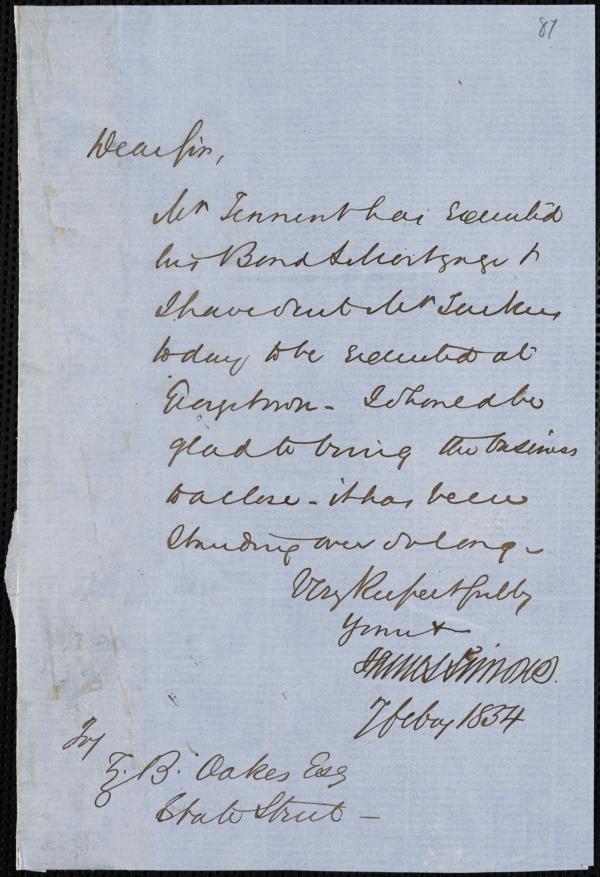 87
Dear Sir,
Mr Tennent has executed
his Bond & Mortgage &
I have sent Mr Tuckers
today to be executed at
Georgetown - I should be
glad to bring the business
to a close - it has been
standing over so long -
Very Respectfully
Yours &
James Simons.
7 Feby 1854
To/
Z. B. Oakes Esq
State Street -